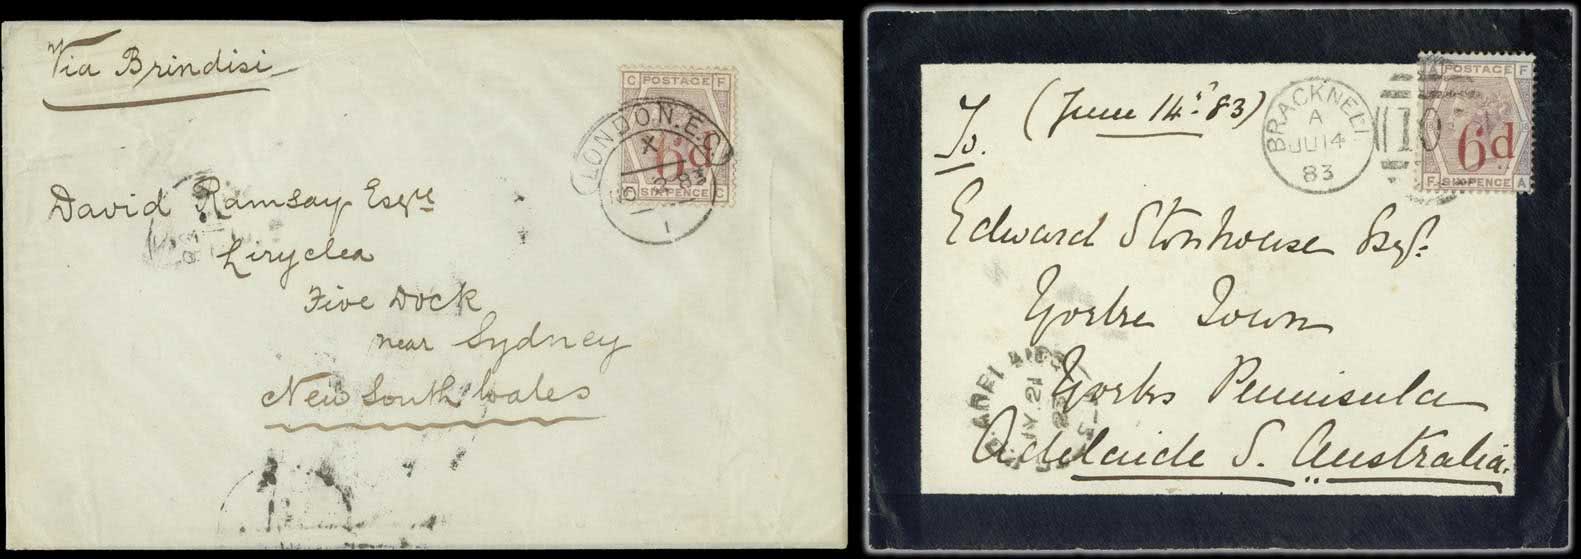 Via Brindisi
C POSTAGE F
6d
SIX PENCE C
LONDON.E.C
X
83
1
David Ramsay Esqre
Liryclea
Five Dock
near Sydney
New South Wales
To.
(June 14th 83)
BRACKNELL
A
JU 14
83
10
A POSTAGE F
6d
F SIX PENCE A
Edward Stonhouse Esqr.
Yorke Town
Yorks Peninsula
Adelaide S. Australia.
JY 21
83